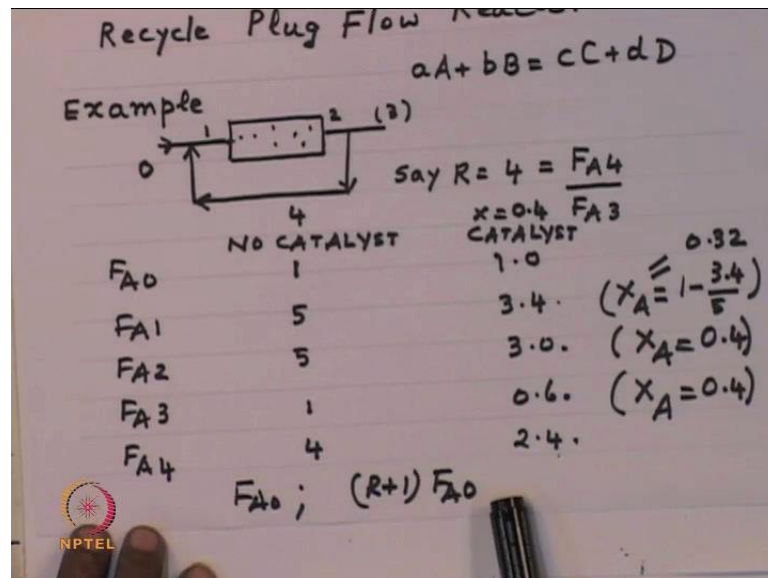 Recycle Plug Flow
aA + bB = cC + dD
Example
0 1 2 (3)
4
Say R = 4 = FA4 / FA3
x = 0.4
NO CATALYST CATALYST
0.32
FA0 1 1.0
FA1 5 3.4. (XA = 1 - 3.4/5)
FA2 5 3.0. (XA = 0.4)
FA3 1 0.6. (XA = 0.4)
FA4 4 2.4.
FA0 ; (R+1) FA0
NPTEL